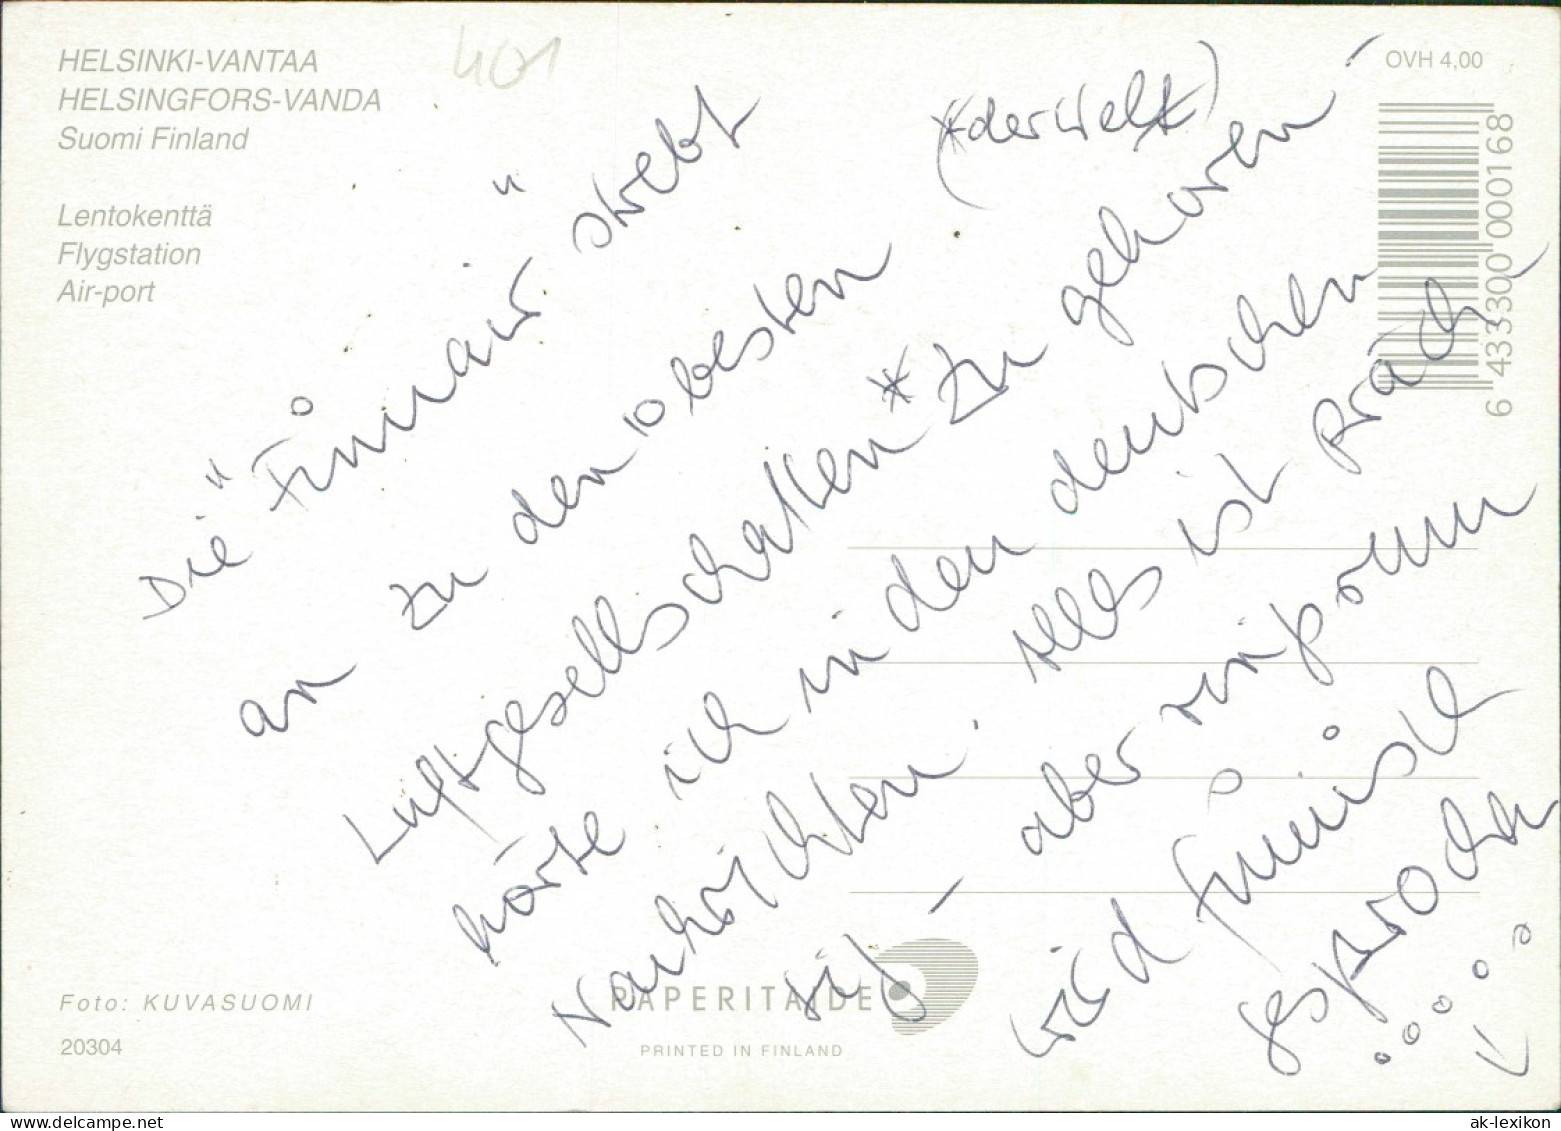 HELSINKI-VANTAA
HELSINGFORS-VANDA
Suomi Finland
Lentokenttä
Flygstation
Air-port
401
OVH 4,00
6 433300 000168
Die "Finnair" strebt
an zu den 10 besten
Luftgesellschaften* zu gehören
(*der Welt)
hörte ich in den deutschen
Nachrichten. Alles ist präch
tig – aber
wird finnisch
gesprochen
Foto: KUVASUOMI
20304
PAPERITAIDE
PRINTED IN FINLAND
www.delcampe.net
ak-lexikon